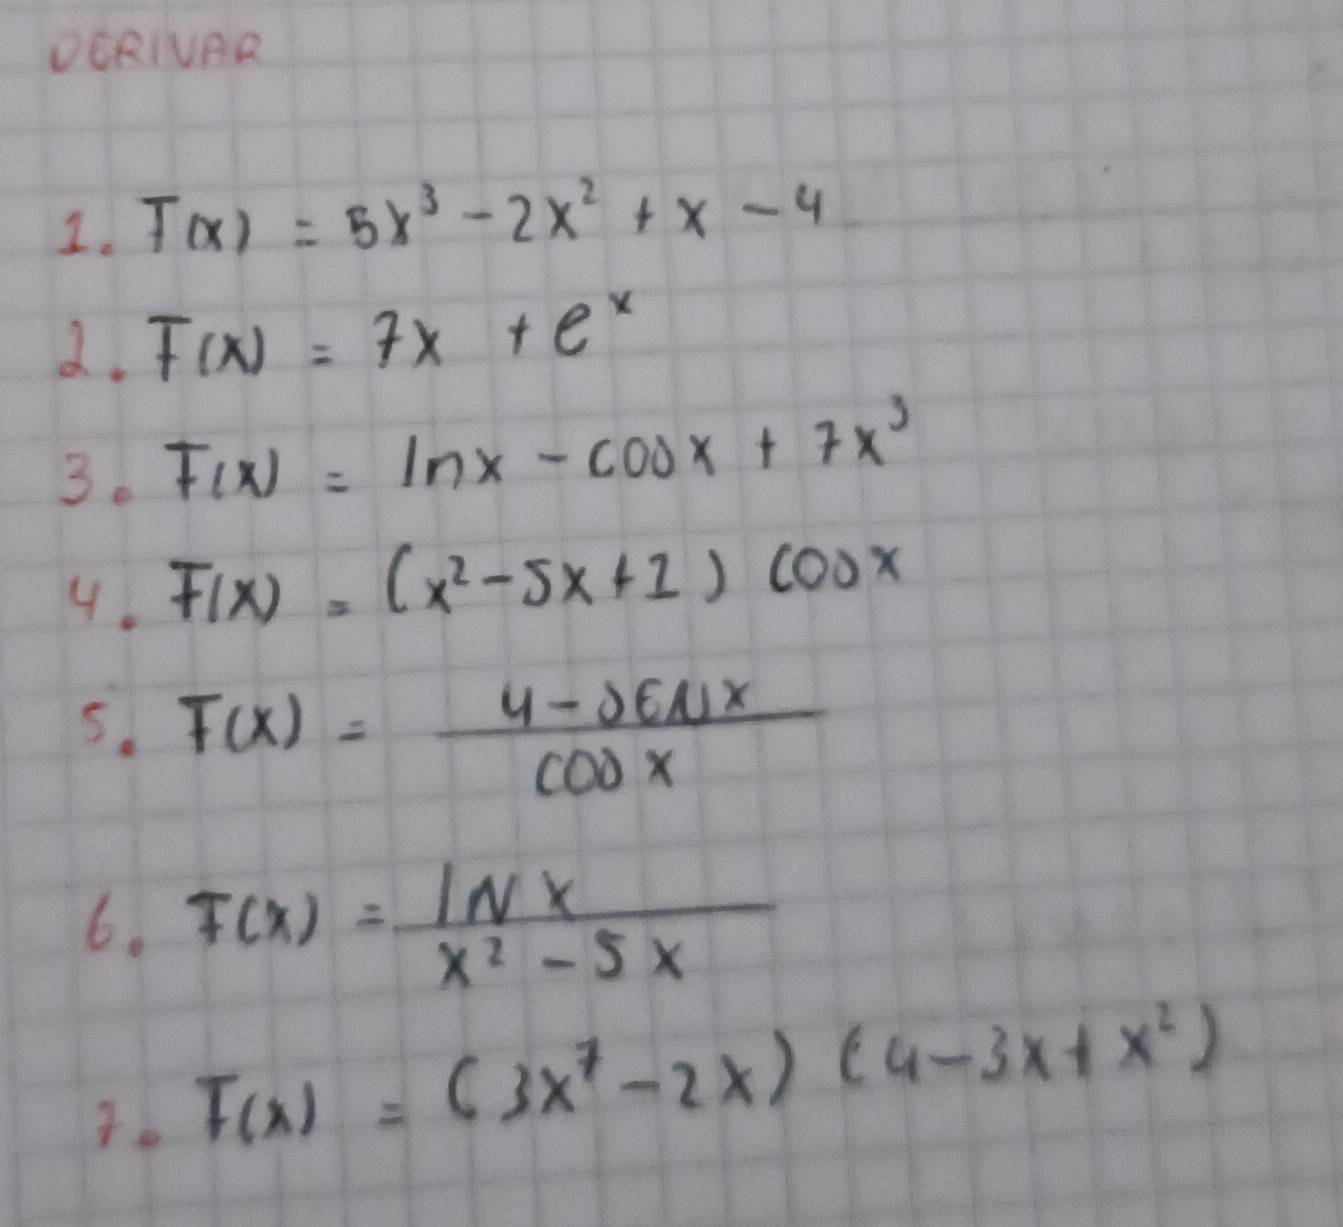 DERIVAR
1. F(x) = 5x³ - 2x² + x - 4
2. F(x) = 7x + eˣ
3. F(x) = lnx - cosx + 7x³
4. F(x) = (x² - 5x + 1) cosx
5. F(x) = 4 - SENx
cosx
6. F(x) = lNx
x² - 5x
7. F(x) = (3x⁷ - 2x) (4 - 3x + x²)